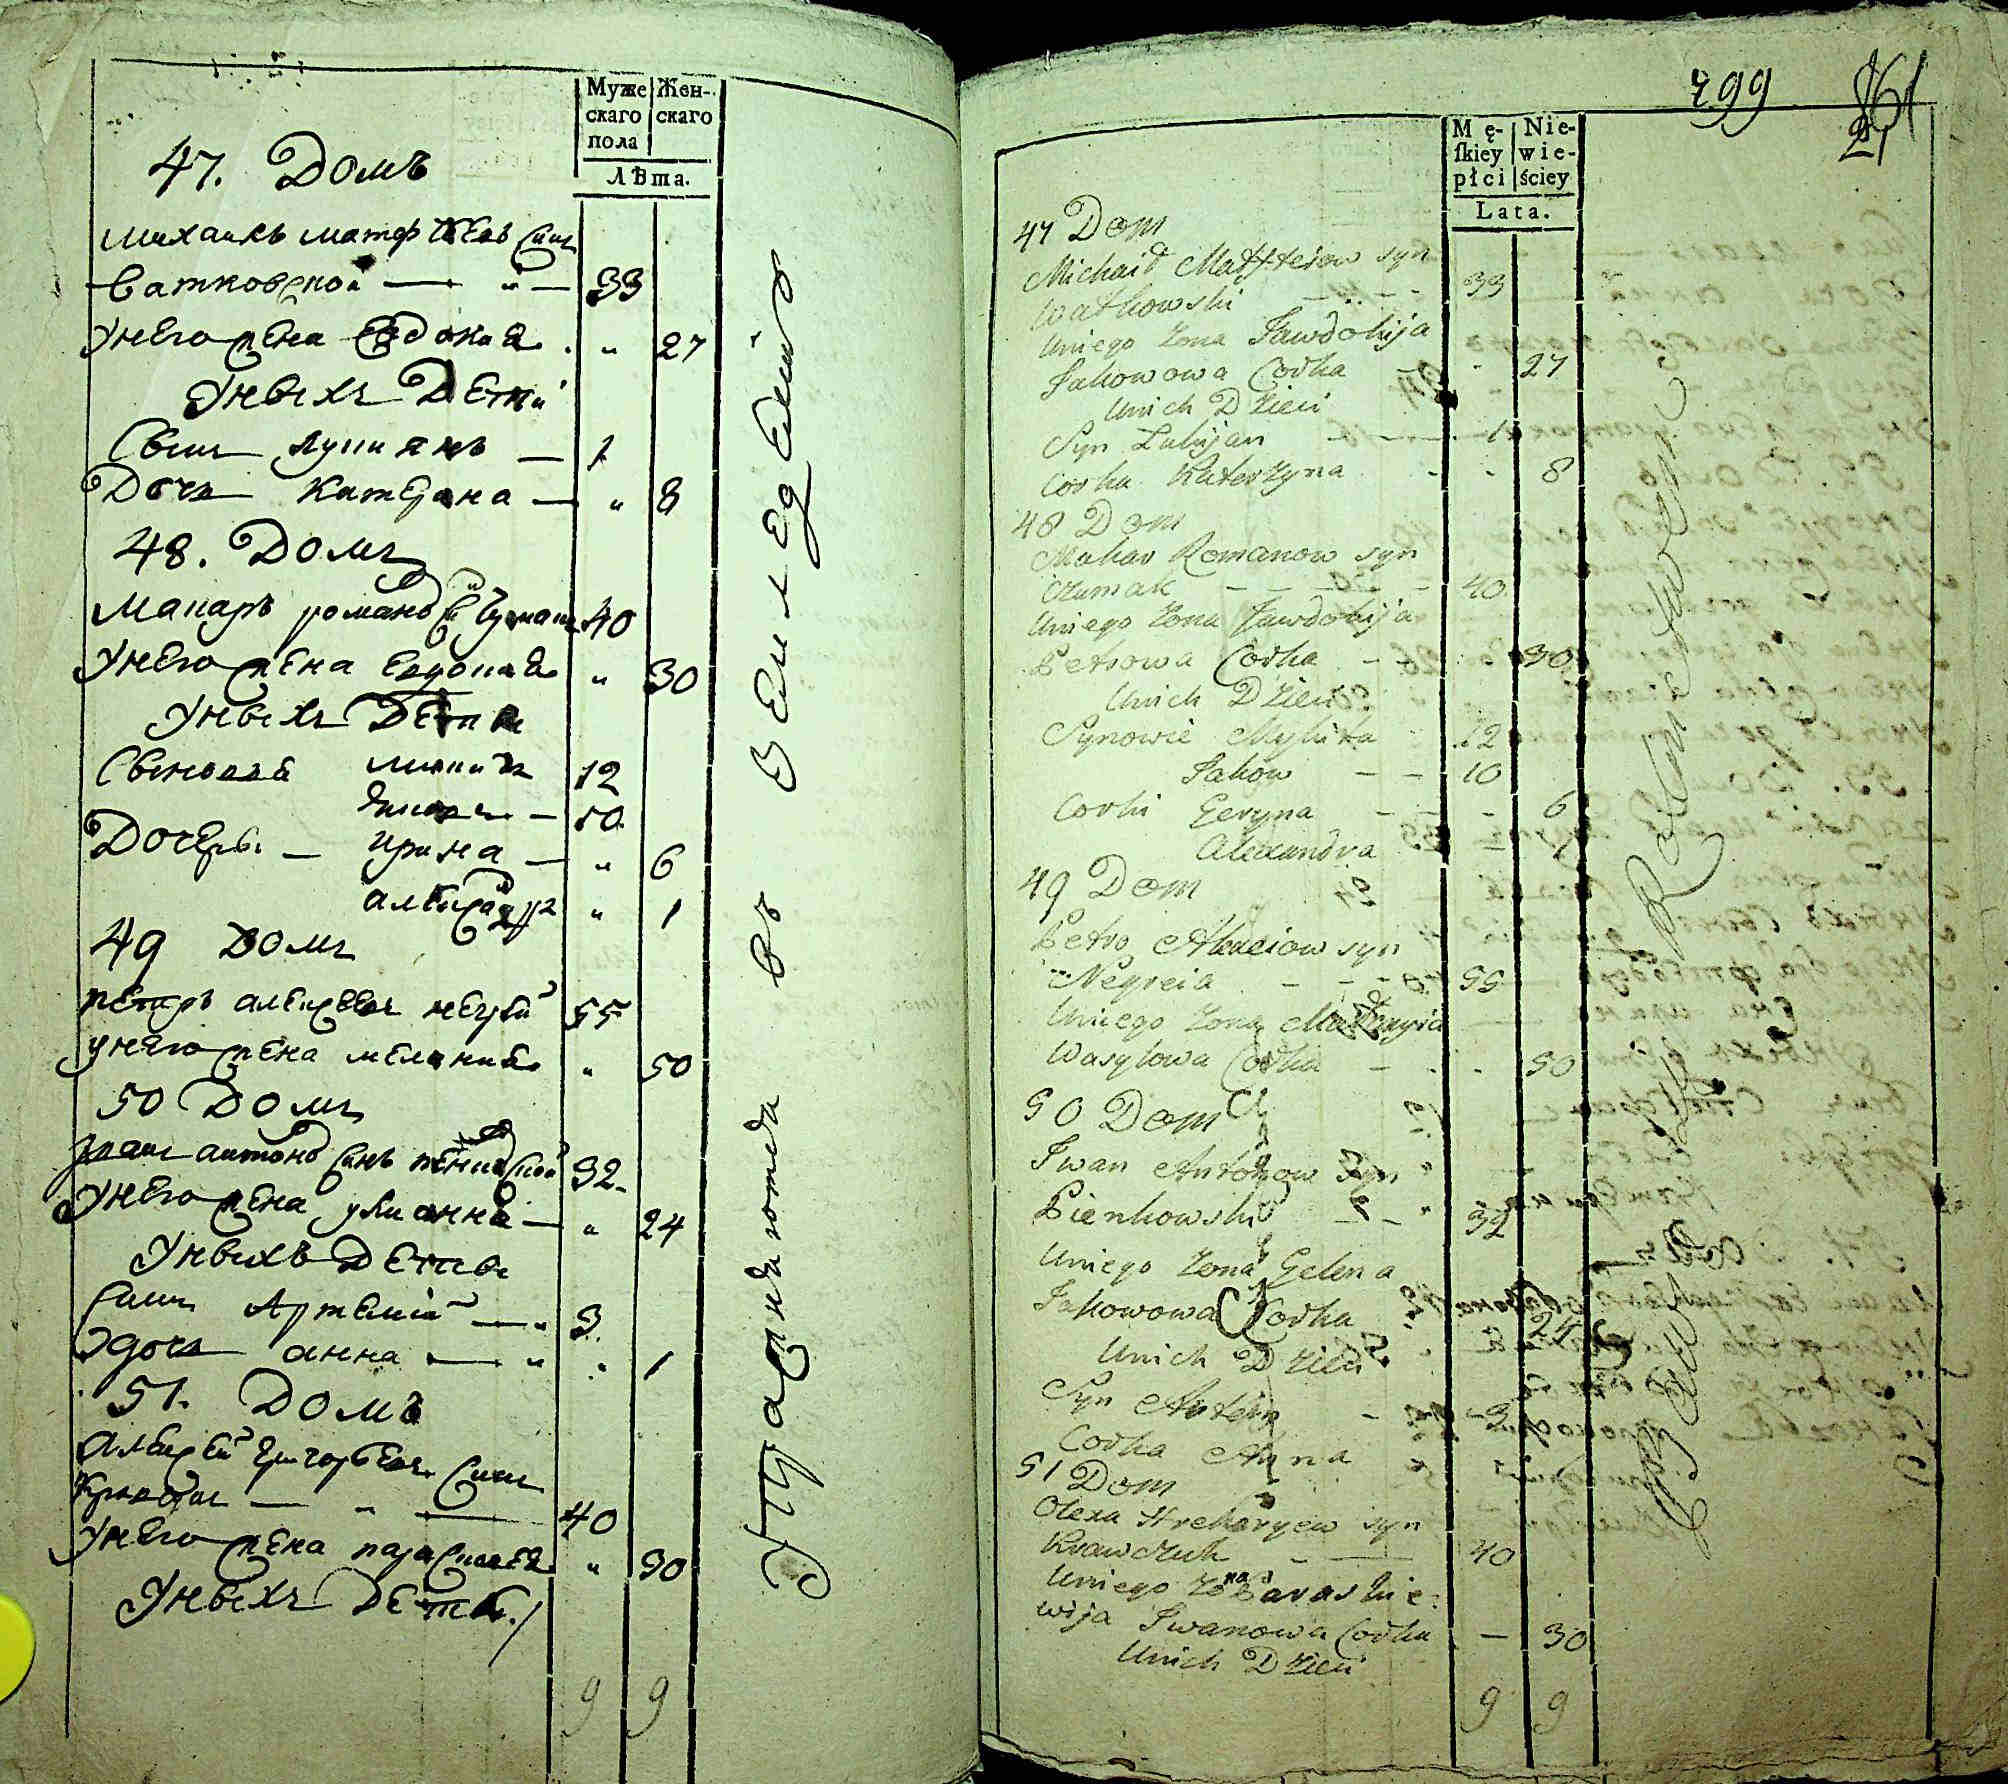 Муже Жен-
скаго скаго
пола
Лѣта.
47. Домъ
Михаилъ Матфѣевъ Синъ
Ватковской — " — 33
Унего жена Евдокия . " 27
Унвихъ Дети
Свинъ Лукиянъ — 1
Дочь Катерина — " 8
48. Домъ
Макаръ романов Си Чумакъ 40
Унего жена Евдокия " 30
Унвихъ Дети
Свиновей Микита 12
Яковъ — 10
Дочери — Ирина — " 6
александра " 1
49 Домъ
петръ алексеевъ негрей 55
унего жена мелания " 50
50 Домъ
Иванъ антонов синъ пенковской 32
Унего жена улианна — " 24
Унвихъ Дети
Синъ Артемий — " 3
дочь анна — " " 1
51. Домъ
Алексей Григорьевъ Синъ
Кравчукъ — " — 40
Унего жена параскевия " 30
Унвихъ Дети
9 9
Упражняются въ Земледелии
299 261
21
Mę- Nie-
skiey wie-
płci ściey
Lata.
47 Dom
Michaił Matfteiew syn
Watkowski - - - 33
Uniego Zona Jawdokija
Jakowowa Corka - - 27
Unich Dzieci
Syn Lukijan - - - 1
Corka Katerzyna - - 8
48 Dom
Makar Romanow syn
Czumak - - - - 40
Uniego Zona Jawdokija
Petrowa Corka - - - 30
Unich Dzieci
Synowie Mykita 12
Jakow - - 10
Corki Geryna - - - 6
Alexandra - 1
49 Dom
Petro Alexeiow syn
Negreia - - - 55
Uniego Zona
Wasylowa Corka - - - 50
50 Dom
Iwan Antonow Syn
Pienkowski - - 32
Uniego Zona Gelena
Jakowowa Corka 24
Unich Dzieci
Syn - 3
Corka Anna
51 Dom
Olexa Hrehoryew syn
Krawczuk - — 40
Uniego Zona Paraskie-
wija Iwanowa Corka - — 30
Unich Dzieci
9 9